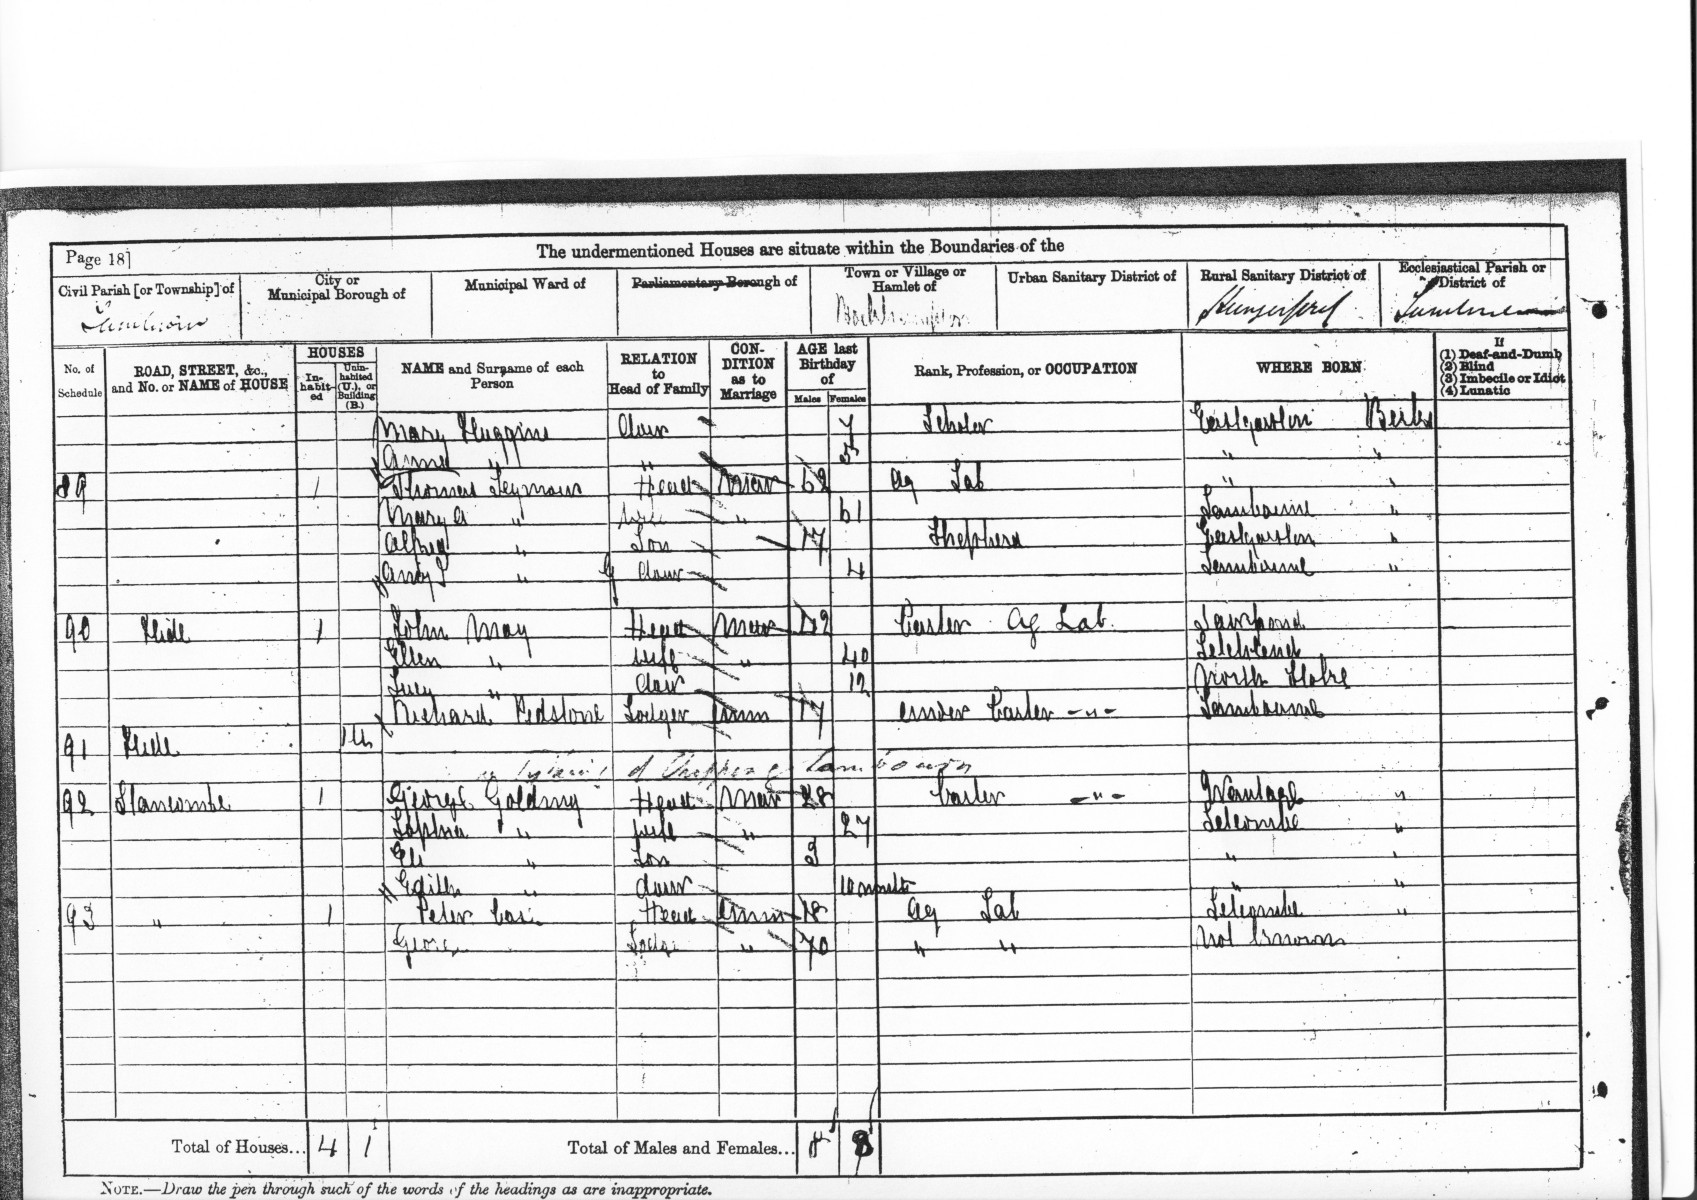 Page 18]
The undermentioned Houses are situate within the Boundaries of the
Civil Parish [or Township] of
City or Municipal Borough of
Municipal Ward of
Parliamentary Borough of
Town or Village or Hamlet of
Urban Sanitary District of
Rural Sanitary District of
Ecclesiastical Parish or District of
Hungerford
No. of Schedule
ROAD, STREET, &c., and No. or NAME of HOUSE
HOUSES
In-habit-ed
Unin-habited (U.), or Building (B.)
NAME and Surname of each Person
RELATION to Head of Family
CON-DITION as to Marriage
AGE last Birthday of
Males Females
Rank, Profession, or OCCUPATION
WHERE BORN
If
(1) Deaf-and-Dumb
(2) Blind
(3) Imbecile or Idiot
(4) Lunatic
Mary Huggins Daur 7 Scholar Eastgarston Berks
" " 5 " "
89 1 Thomas Seymour Head Mar 62 Ag Lab " "
Mary A " wife " 61 Lambourne "
Alfred " Son 17 Shepherd Eastgarston "
" G Daur 4 Lambourne "
90 1 John May Head Mar 42 Carter Ag Lab
Ellen " wife " 40
Lucy " Daur 12 North
Richard Lodger Unm 17 under Carter -"- Lambourne
91
92 1 George Golding Head Mar 28 Carter -"- Wantage "
Sophia " wife " 27 Letcombe "
Eli " Son 3 " "
Edith " daur 10 months " "
93 " 1 Peter Head Unm 18 Ag Lab Letcombe "
George Lodger " 70 " " Not known
Total of Houses... 4 1
Total of Males and Females... 8 8
NOTE.—Draw the pen through such of the words of the headings as are inappropriate.